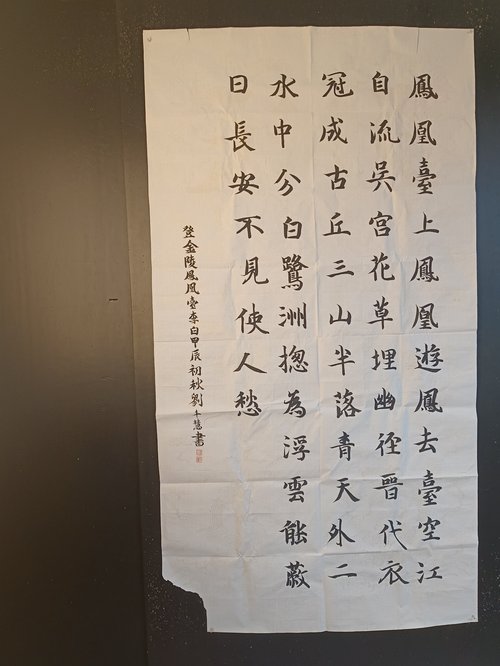 鳳凰臺上鳳凰遊鳳去臺空江
自流吳宮花草埋幽徑晉代衣
冠成古丘三山半落青天外二
水中分白鷺洲揔為浮雲能蔽
日長安不見使人愁
登金陵鳳凰臺李白甲辰初秋劉千慧書